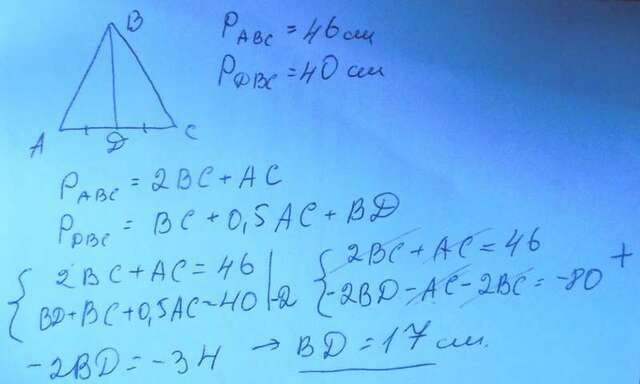 B
P_ABC = 46 см
P_DBC = 40 см
A D C
P_ABC = 2BC + AC
P_DBC = BC + 0,5AC + BD
{ 2BC + AC = 46 | { 2BC + AC = 46 +
BD + BC + 0,5AC = 40 | -2 -2BD - AC - 2BC = -80
-2BD = -34 → BD = 17 см.